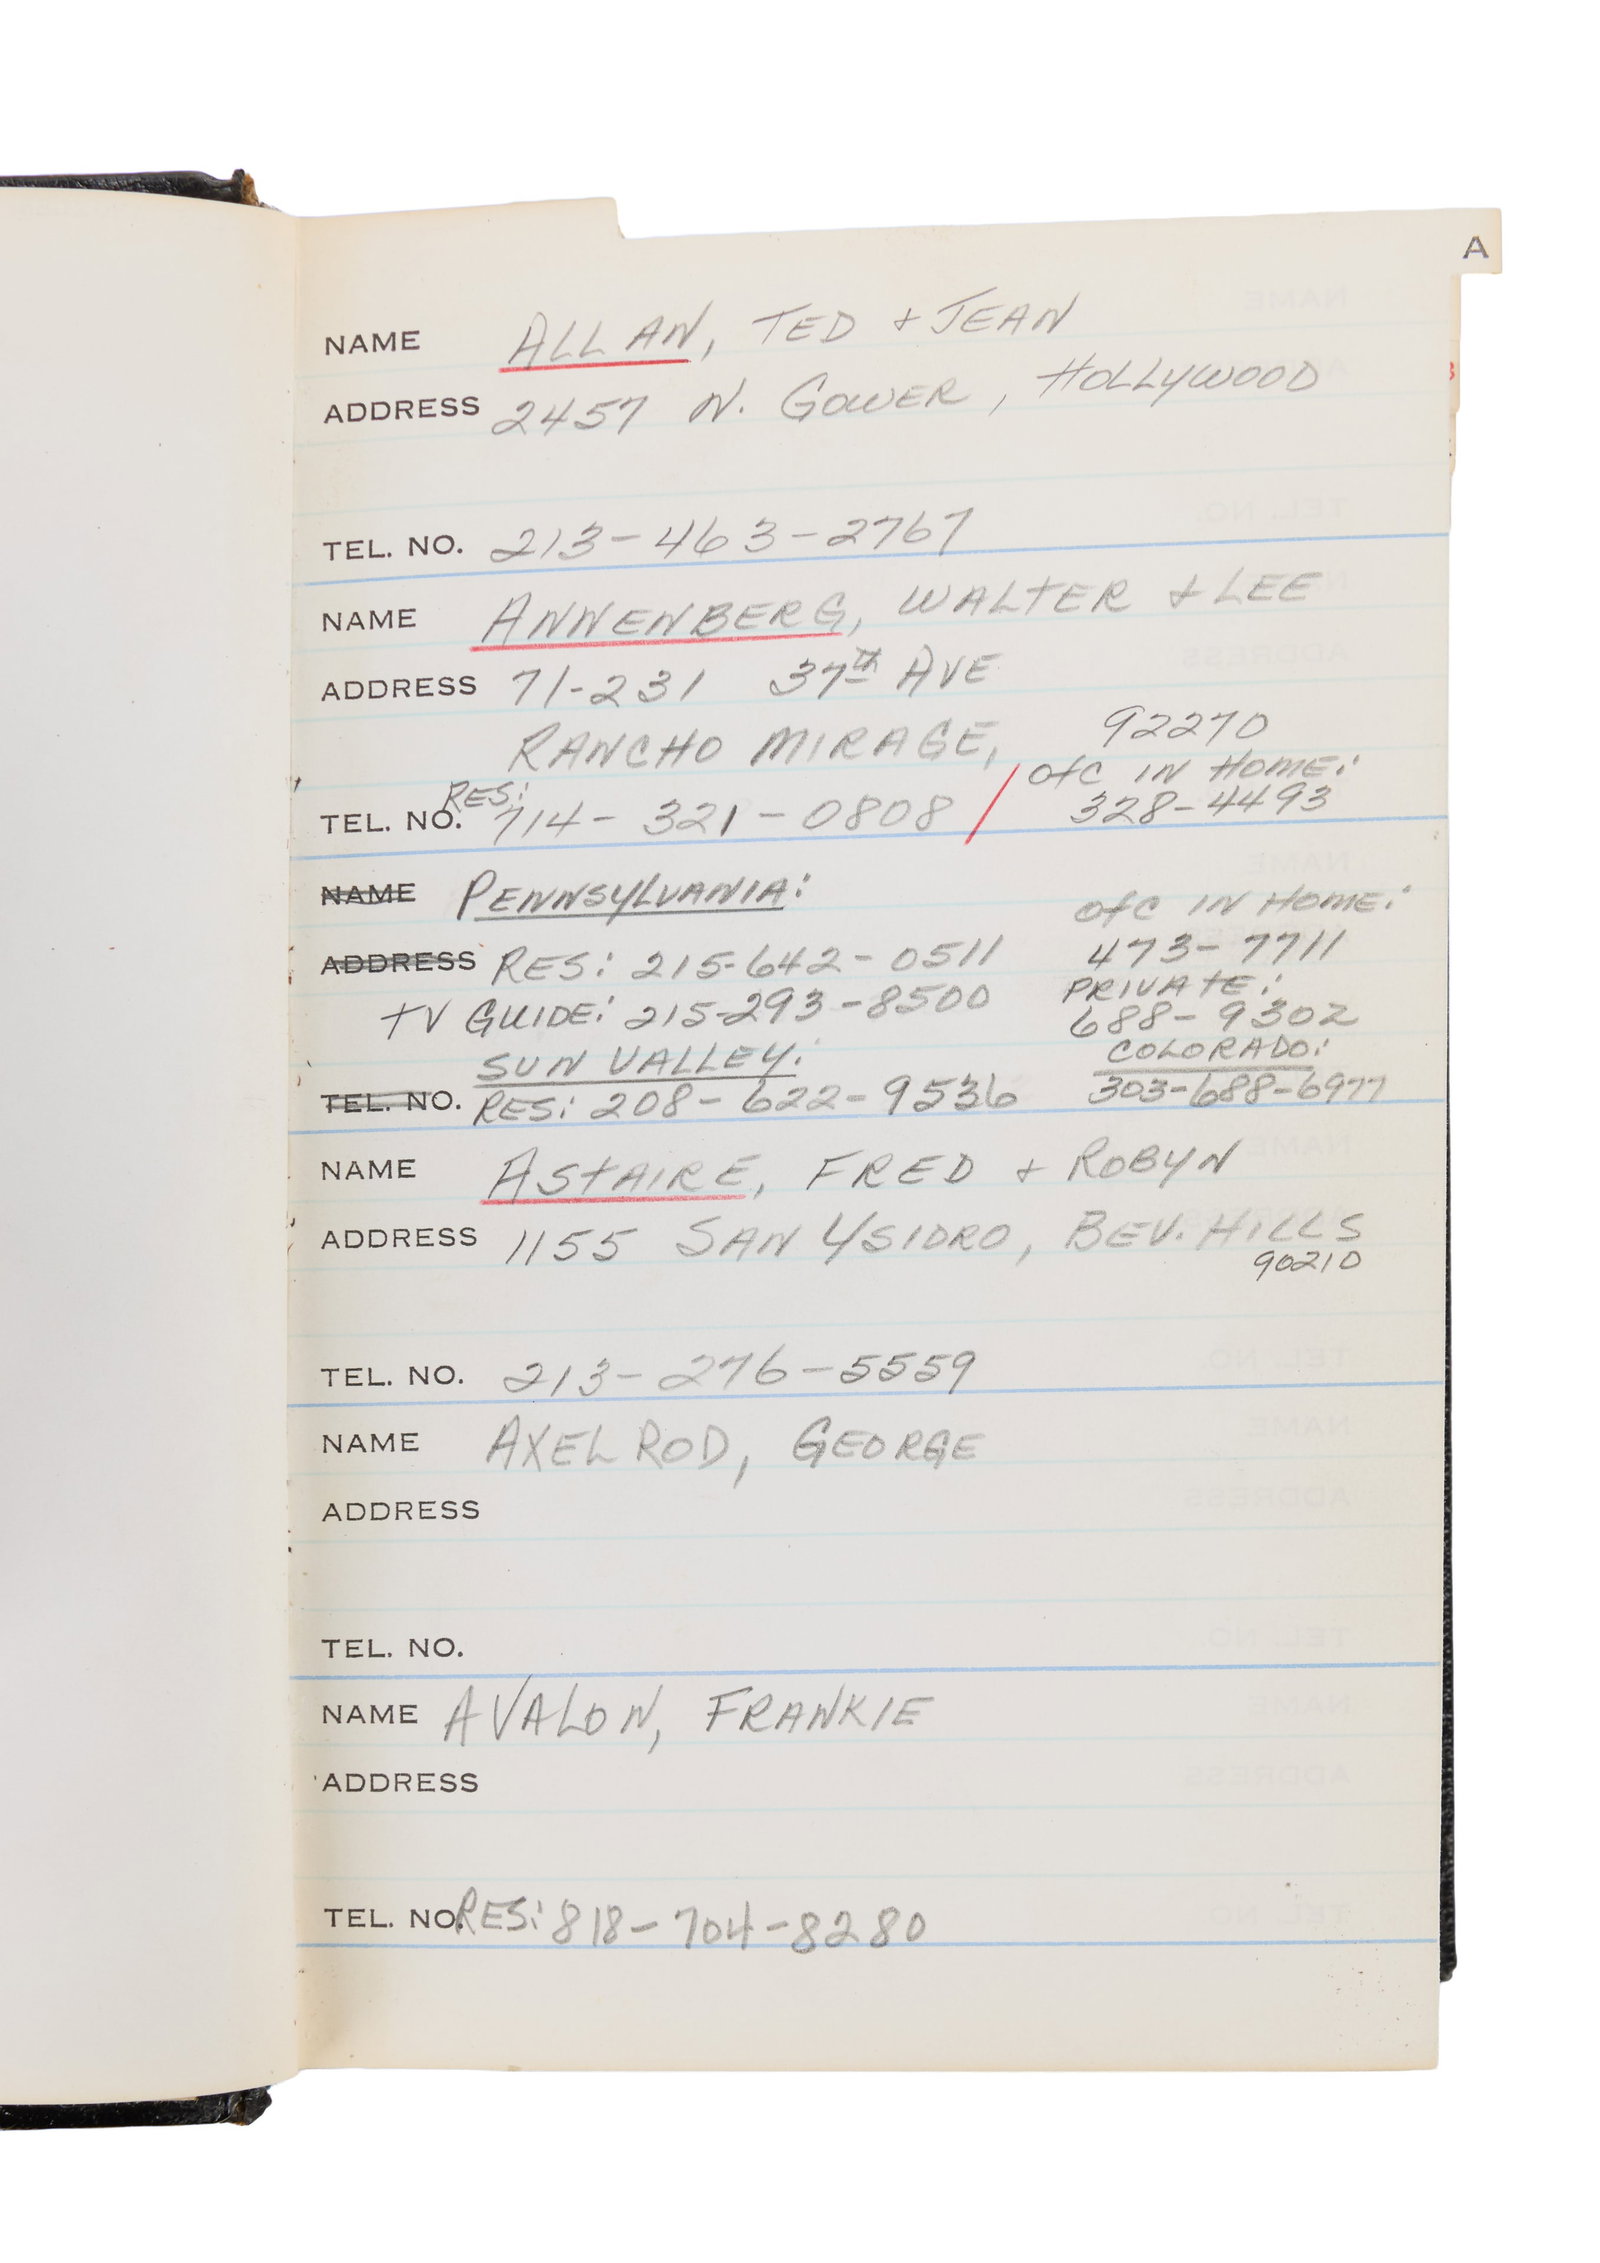 A
NAME ALLAN, TED + JEAN
ADDRESS 2457 N. GOWER, HOLLYWOOD
TEL. NO. 213-463-2767
NAME ANNENBERG, WALTER + LEE
ADDRESS 71-231 37th AVE
RANCHO MIRAGE, 92270
OFC IN HOME:
328-4493
RES:
TEL. NO. 714-321-0808 /
NAME PENNSYLVANIA:
OFC IN HOME:
ADDRESS RES: 215-642-0511 473-7711
PRIVATE:
TV GUIDE: 215-293-8500 688-9302
SUN VALLEY: COLORADO:
TEL. NO. RES: 208-622-9536 303-688-6977
NAME ASTAIRE, FRED + ROBYN
ADDRESS 1155 SAN YSIDRO, BEV. HILLS
90210
TEL. NO. 213-276-5559
NAME AXELROD, GEORGE
ADDRESS
TEL. NO.
NAME AVALON, FRANKIE
ADDRESS
TEL. NO. RES: 818-704-8280